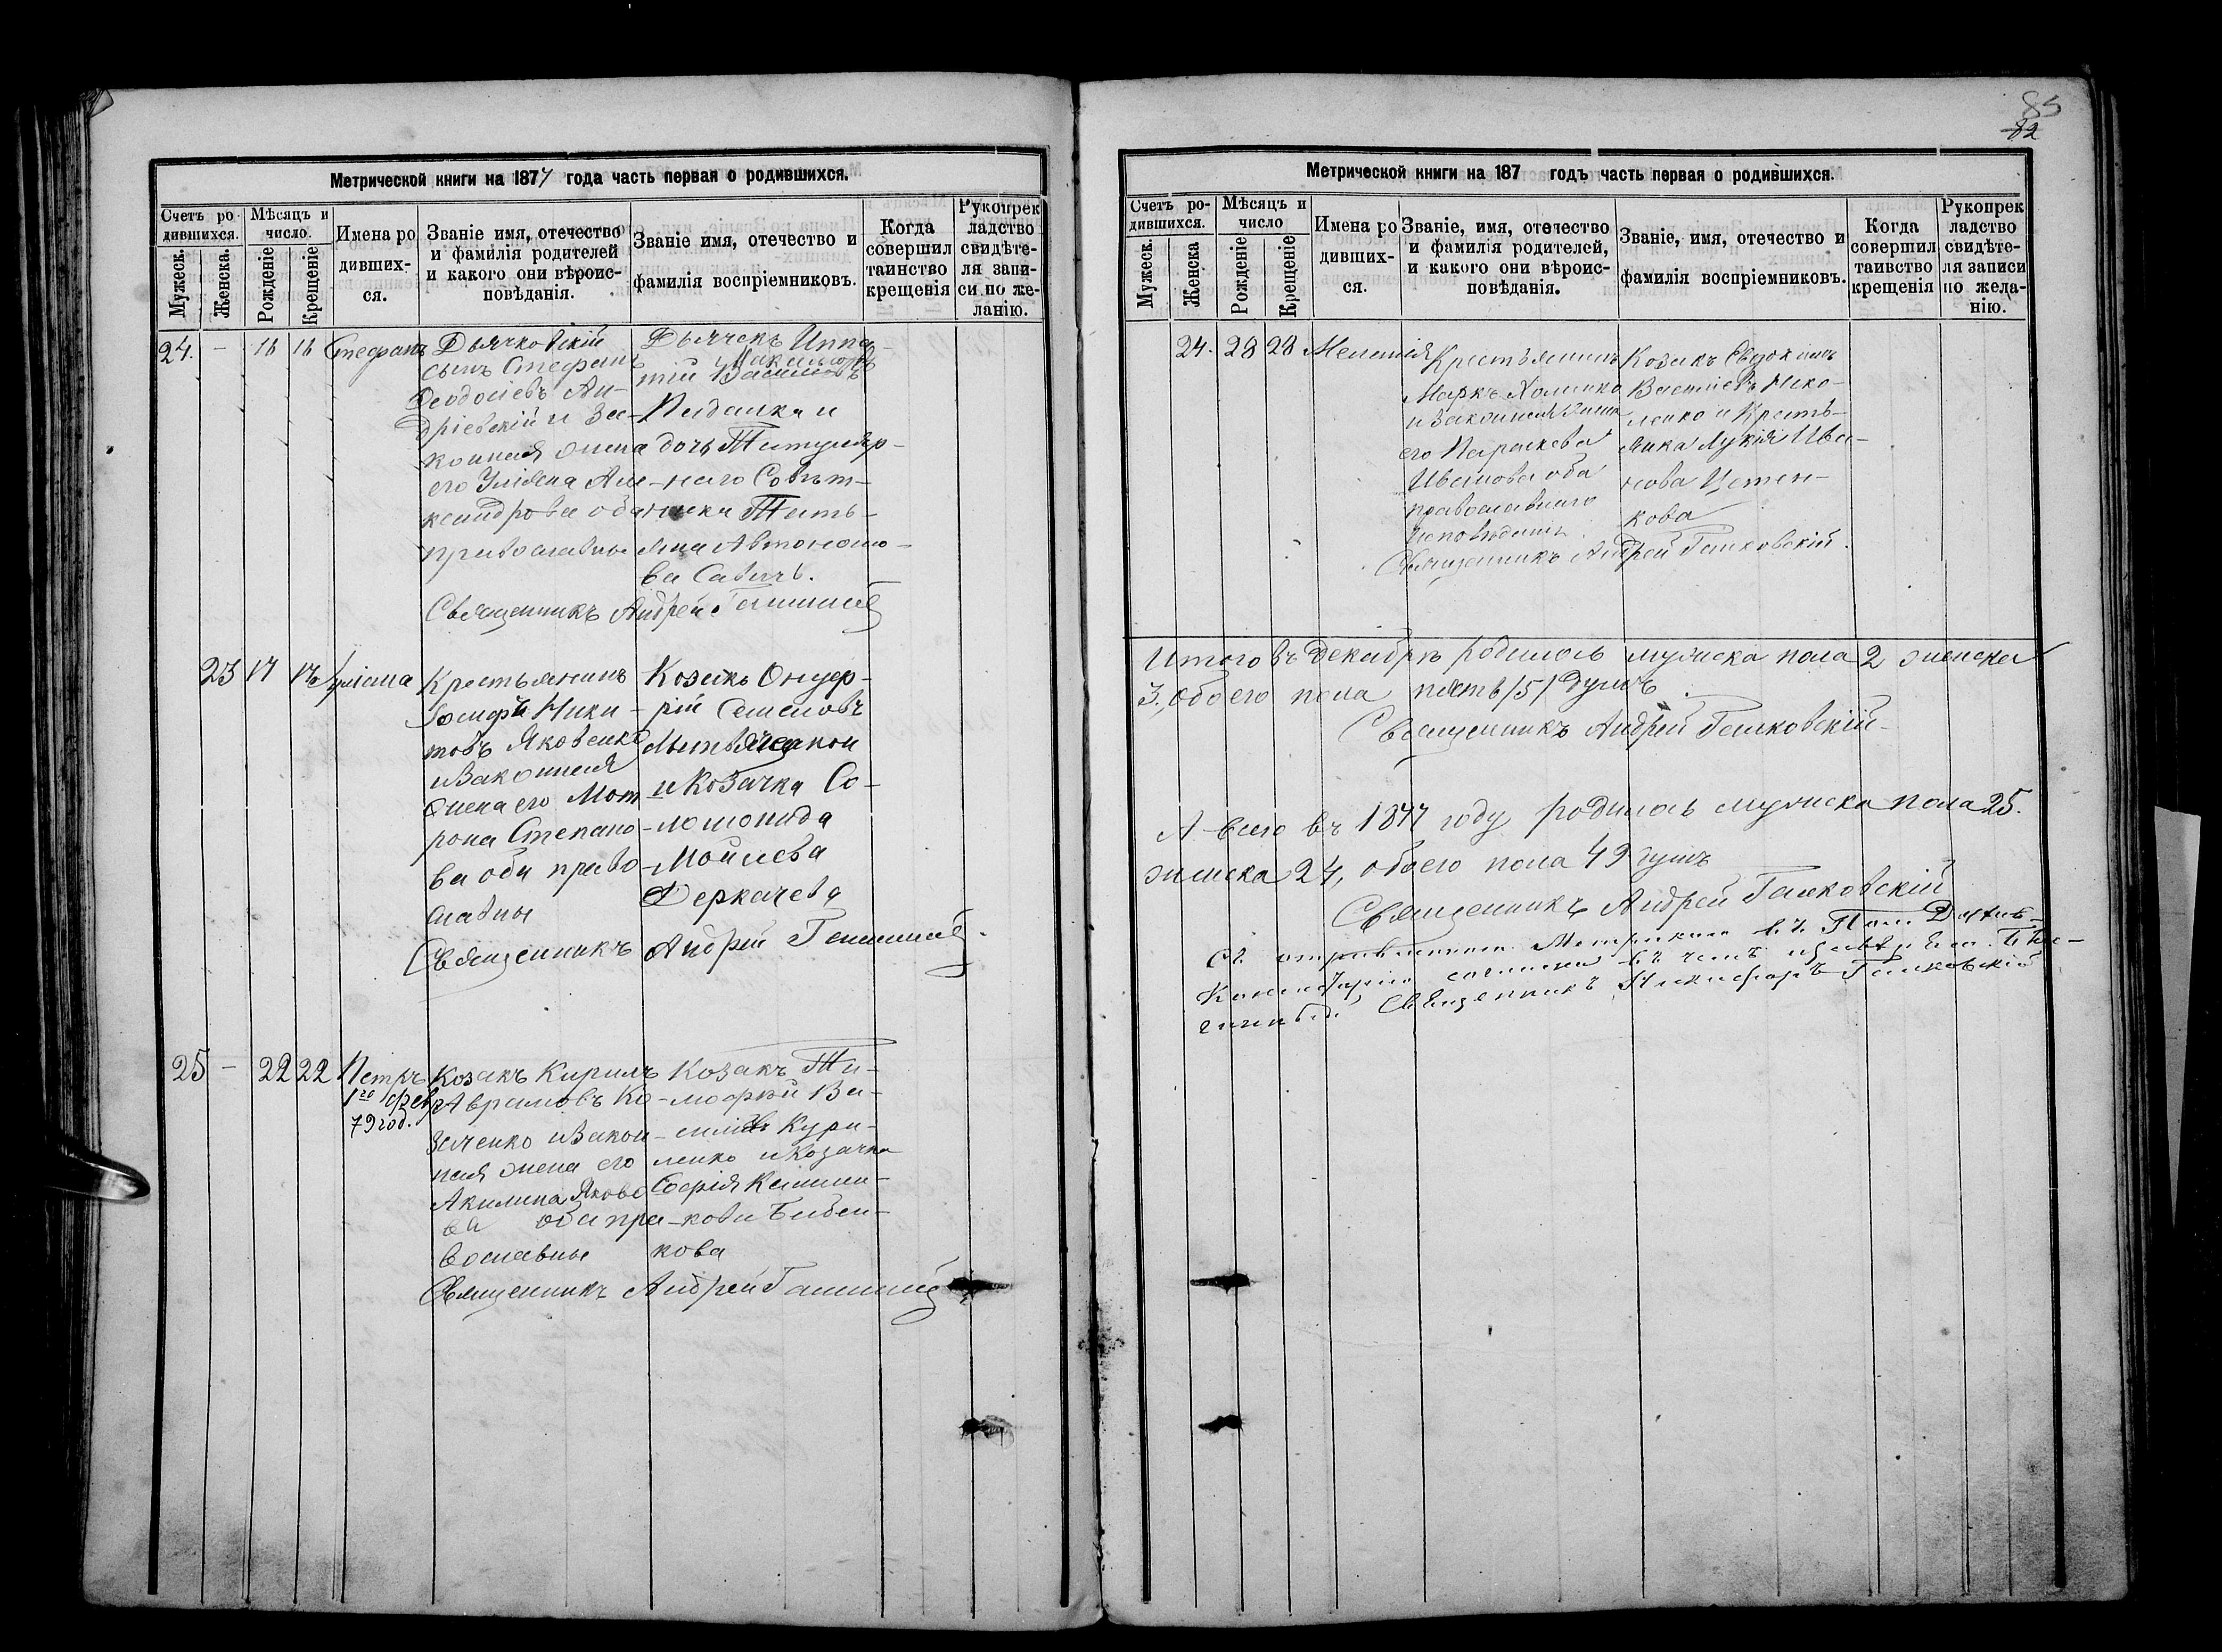 Метрической книги на 1877 года часть первая о родившихся.
Счетъ ро дившихся.
Мѣсяцъ и число.
Мужеск.
Женска.
Рожденіе
Крещеніе
Имена ро дивших-ся.
Званіе имя, отечество и фамилія родителей и какого они вѣроис-повѣданія.
Званіе имя, отечество и фамилія воспріемниковъ.
Когда совершил таинство крещенія
Рукоприк ладство свидѣте-ля запи-си по же-ланію.
24. — 16 16 Стефанъ
Дьячковскій
сынъ Стефанъ
Ѳеодосіевъ Ан-
дріевскій и За-
конная жена
его Уліяна Але-
ксандрова оба
православны
Дьячекъ Ипа-
тій
Максимовъ
и
дочь Титуляр-
наго Совѣт-
ника Тать-
яна Автономо-
ва Савичъ.
Священникъ Андрей
23 17 17 Уліана
Крестьянинъ
Іосифъ Ники-
товъ Яковенко
и Законная
жена его Мот
рона Степано-
ва оба право-
славны
Козакъ Онуф-
рій Семеновъ
и Козачка Со-
ломонида
Мойсева
Деркачева
Священникъ Андрей
25 — 22 22 Петръ
1го фев.
79 год.
Козакъ Кирилъ
Аврамовъ Ко-
зиченко и Закон-
ная жена его
Акилина Яковл
ва оба пра-
вославны
Козакъ Ти-
мофей Ва-
силіевъ Кури-
ленко и Козачка
Софія
кова Бибен-
кова
Священникъ Андрей
85
82
Метрической книги на 187 годъ часть первая о родившихся.
Счетъ ро-дившихся.
Мѣсяцъ и число
Мужеск.
Женска
Рожденіе
Крещеніе
Имена ро дивших-ся.
Званіе, имя, отечество и фамилія родителей, и какого они вѣроис-повѣданія.
Званіе, имя, отечество и фамилія воспріемниковъ.
Когда совершил таивство крещенія
Рукопрек ладство свидѣте-ля записи по жела-нію.
24. 28 28 Меланія
Крестьянинъ
Маркъ Хоменко
и Законная жена
его Параскева
Иванова оба
православнаго
исповѣданія
Козакъ Евдокимъ
Василіевъ Нико-
ленко и Кресть-
янка Лукія Ива-
нова
кова
Священникъ Андрей Гашковскій.
Итого въ Декабрѣ родилось мужска пола 2 женска
3, обоего пола пять /5/ душъ.
Священникъ Андрей Гашковскій
А всего въ 1877 году родилось мужска пола 25.
женска 24, обоего пола 49 душъ
Священникъ Андрей Гашковскій
Съ Метрикою въ Пол. Духов-
Консисторію въ чемъ
Священникъ Никифоръ Гашковскій